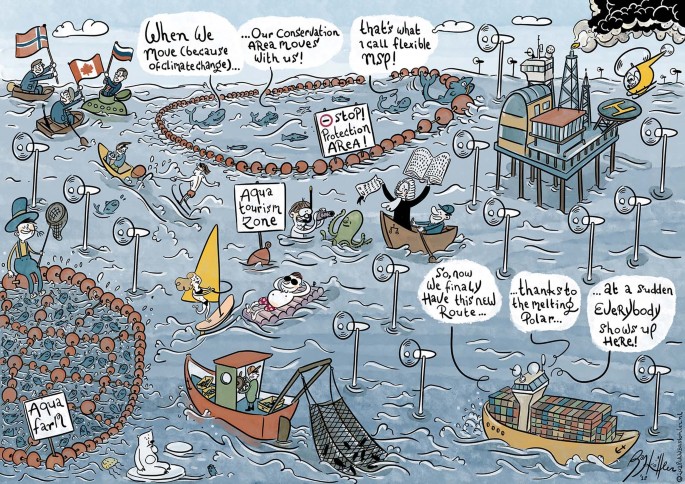 When We
Move (because
of climatechange)...
...Our Conservation
Area moves
With us!
that's what
I call flexible
MSP!
Stop!
Protection
Area!
Aqua
tourism
Zone
H
So, now
We finaly
Have this new
Route...
...thanks to
the melting
Polar...
...at a sudden
EVERYBODY
shows up
Here!
Aqua
farm